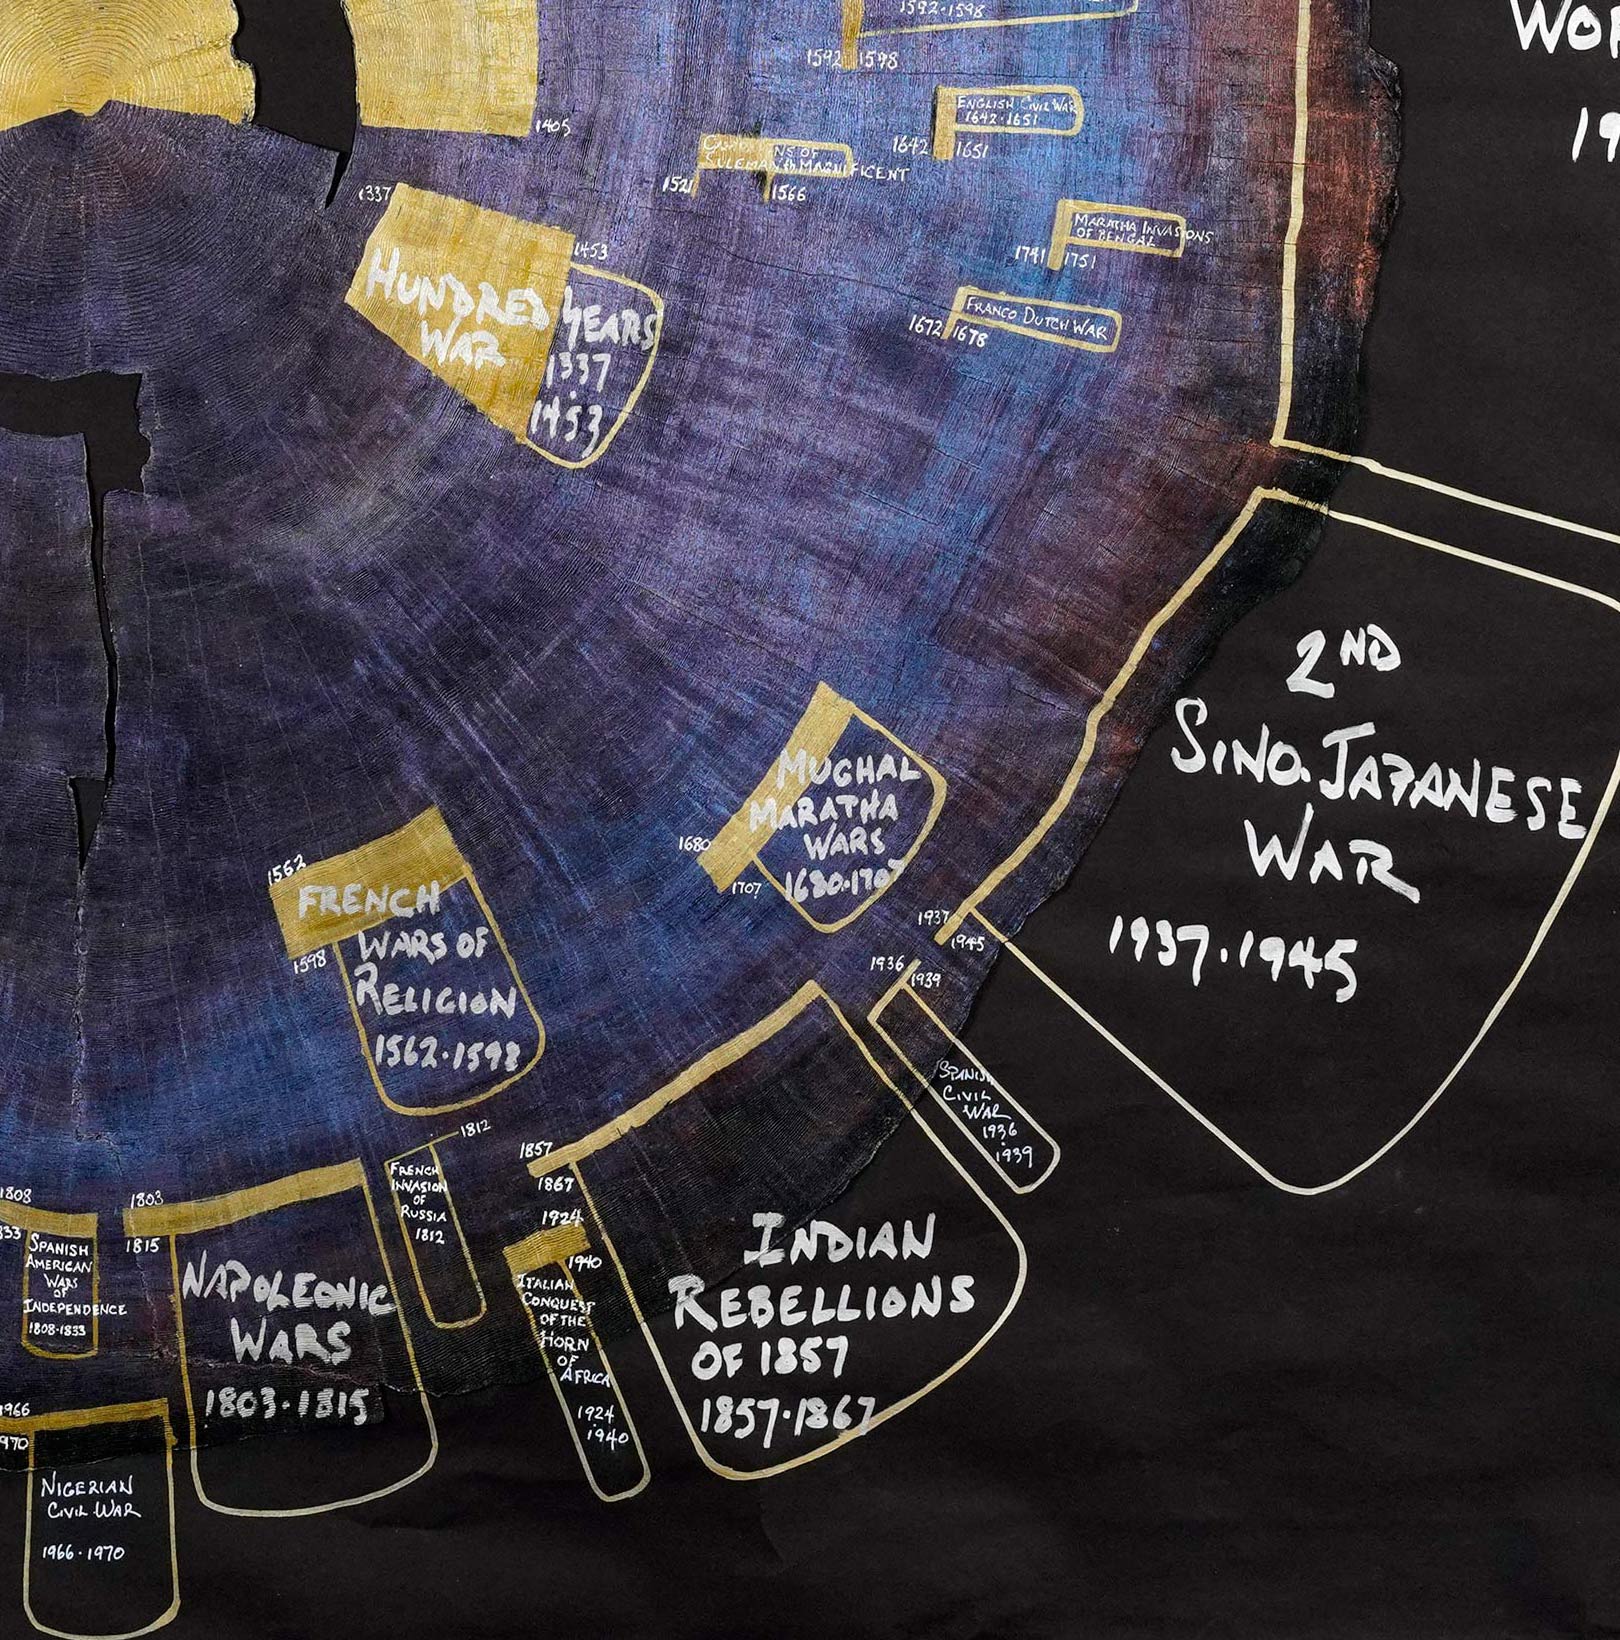 1592-1598
1592
1598
WOR
19
ENGLISH CIVIL WAR
1642-1651
1642
1651
1405
NS OF
SULEMAN th MAGNIFICENT
1521
1566
1337
1453
HUNDRED YEARS
WAR
1337
1453
MARATHA INVASIONS
OF BENGAL
1741
1751
FRANCO DUTCH WAR
1672
1678
2ND
SINO.JAPANESE
WAR
1937.1945
1937
1945
MUGHAL
MARATHA
WARS
1680.1707
1680
1707
1562
FRENCH
WARS OF
RELIGION
1562.1598
1598
1936
1939
SPANISH
CIVIL
WAR
1936
1939
1812
FRENCH
INVASION
OF
RUSSIA
1812
1857
1867
INDIAN
REBELLIONS
OF 1857
1857.1867
1924
1940
ITALIAN
CONQUEST
OF THE
HORN
OF
AFRICA
1924
1940
1803
1815
NAPOLEONIC
WARS
1803.1815
1808
833
SPANISH
AMERICAN
WARS
OF
INDEPENDENCE
1808-1833
1966
970
NIGERIAN
CIVIL WAR
1966.1970